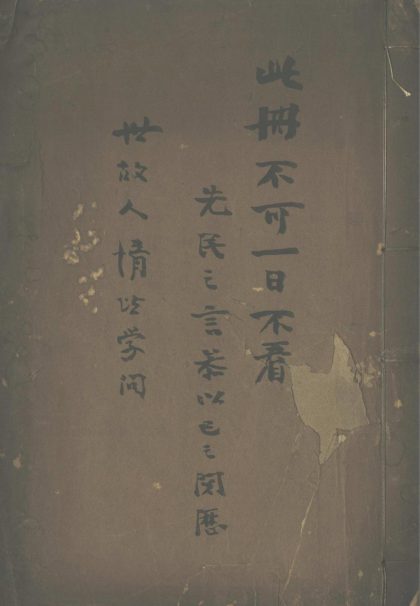 此冊不可一日不看
先民之言参以己之閱歷
世故人情皆学问